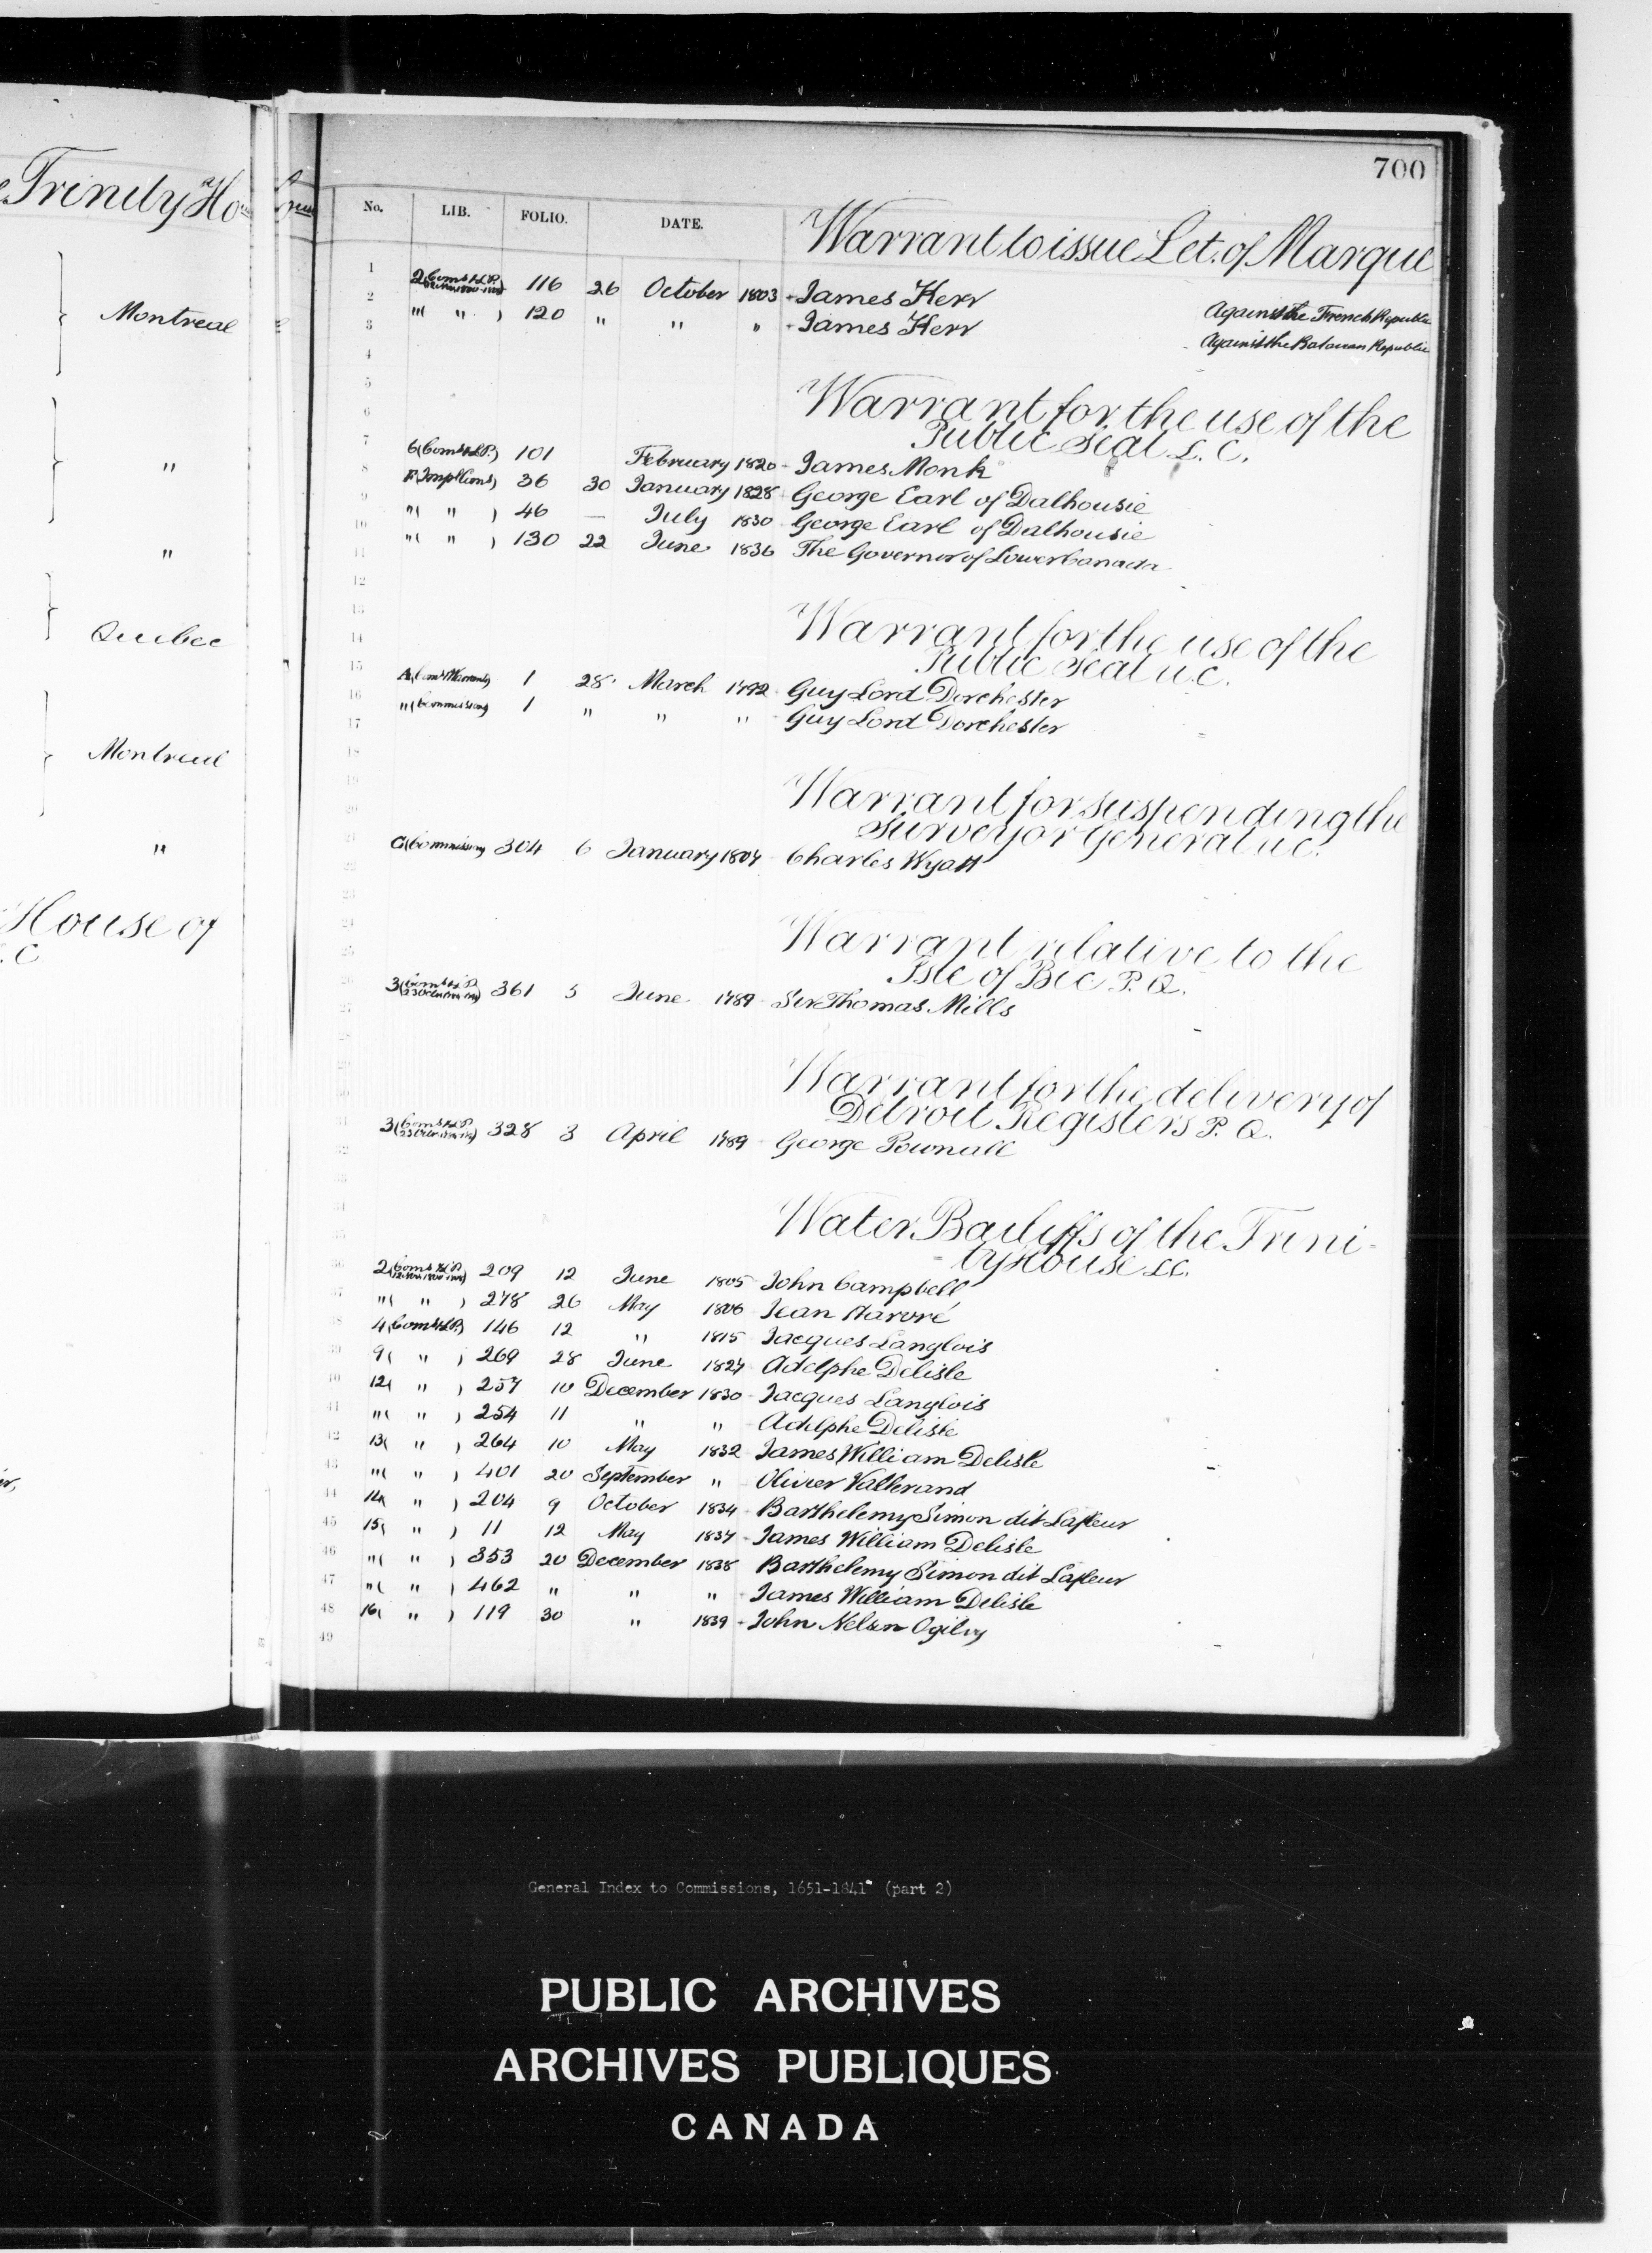 Trinity Hou
Montreal
"
"
Quebec
Montreal
"
House of
. C
700
No. LIB. FOLIO. DATE.
Warrant to issue Let. of Marque
1 2 (Coms & L.P. 116 26 October 1803 James Kerr Against the French Republic
2 " ( " ) 120 " " " James Kerr Against the Batavian Republic
3
4
5
Warrant for the use of the
6
Public Seal L. C.
7 6 (Coms & L.P.) 101 February 1820 James Monk
8 F (Impl Coms) 36 30 January 1828 George Earl of Dalhousie
9 " ( " ) 46 — July 1830 George Earl of Dalhousie
10 " ( " ) 130 22 June 1836 The Governor of Lower Canada
11
12
13
Warrant for the use of the
14
Public Seal U.C.
15 A (Coms & Warrants) 1 28 March 1792 Guy Lord Dorchester
16 " (Commissions) 1 " " " Guy Lord Dorchester
17
18
19
Warrant for suspending the
20
Surveyor General U.C.
21 C (Commissions 304 6 January 1807 Charles Wyatt
22
23
24
Warrant relative to the
25
Isle of Bic P. Q.
26 3 (Coms & L.P. 361 5 June 1789 Sir Thomas Mills
27
28
29
Warrant for the delivery of
30
Detroit Registers P. Q.
31 3 (Coms & L.P. 328 3 April 1789 George Pownall
32
33
34
Water Bailiffs of the Trini-
35
-ty House L.C.
36 2 (Coms & L.P. 209 12 June 1805 John Campbell
37 " ( " ) 278 26 May 1806 Jean
38 4 (Coms & L.P.) 146 12 " 1815 Jacques Langlois
39 9 ( " ) 269 28 June 1827 Adolphe Delisle
40 12 ( " ) 257 10 December 1830 Jacques Langlois
41 " ( " ) 254 11 " " Adelphe Delisle
42 13 ( " ) 264 10 May 1832 James William Delisle
43 " ( " ) 401 20 September " Olivier Vallerand
44 14 ( " ) 204 9 October 1834 Barthelemy Simon dit Lafleur
45 15 ( " ) 11 12 May 1837 James William Delisle
46 " ( " ) 353 20 December 1838 Barthelemy Simon dit Lafleur
47 " ( " ) 462 " " " James William Delisle
48 16 ( " ) 119 30 " 1839 John Nelson Ogilvy
49
General Index to Commissions, 1651-1841 (part 2)
PUBLIC ARCHIVES
ARCHIVES PUBLIQUES
CANADA